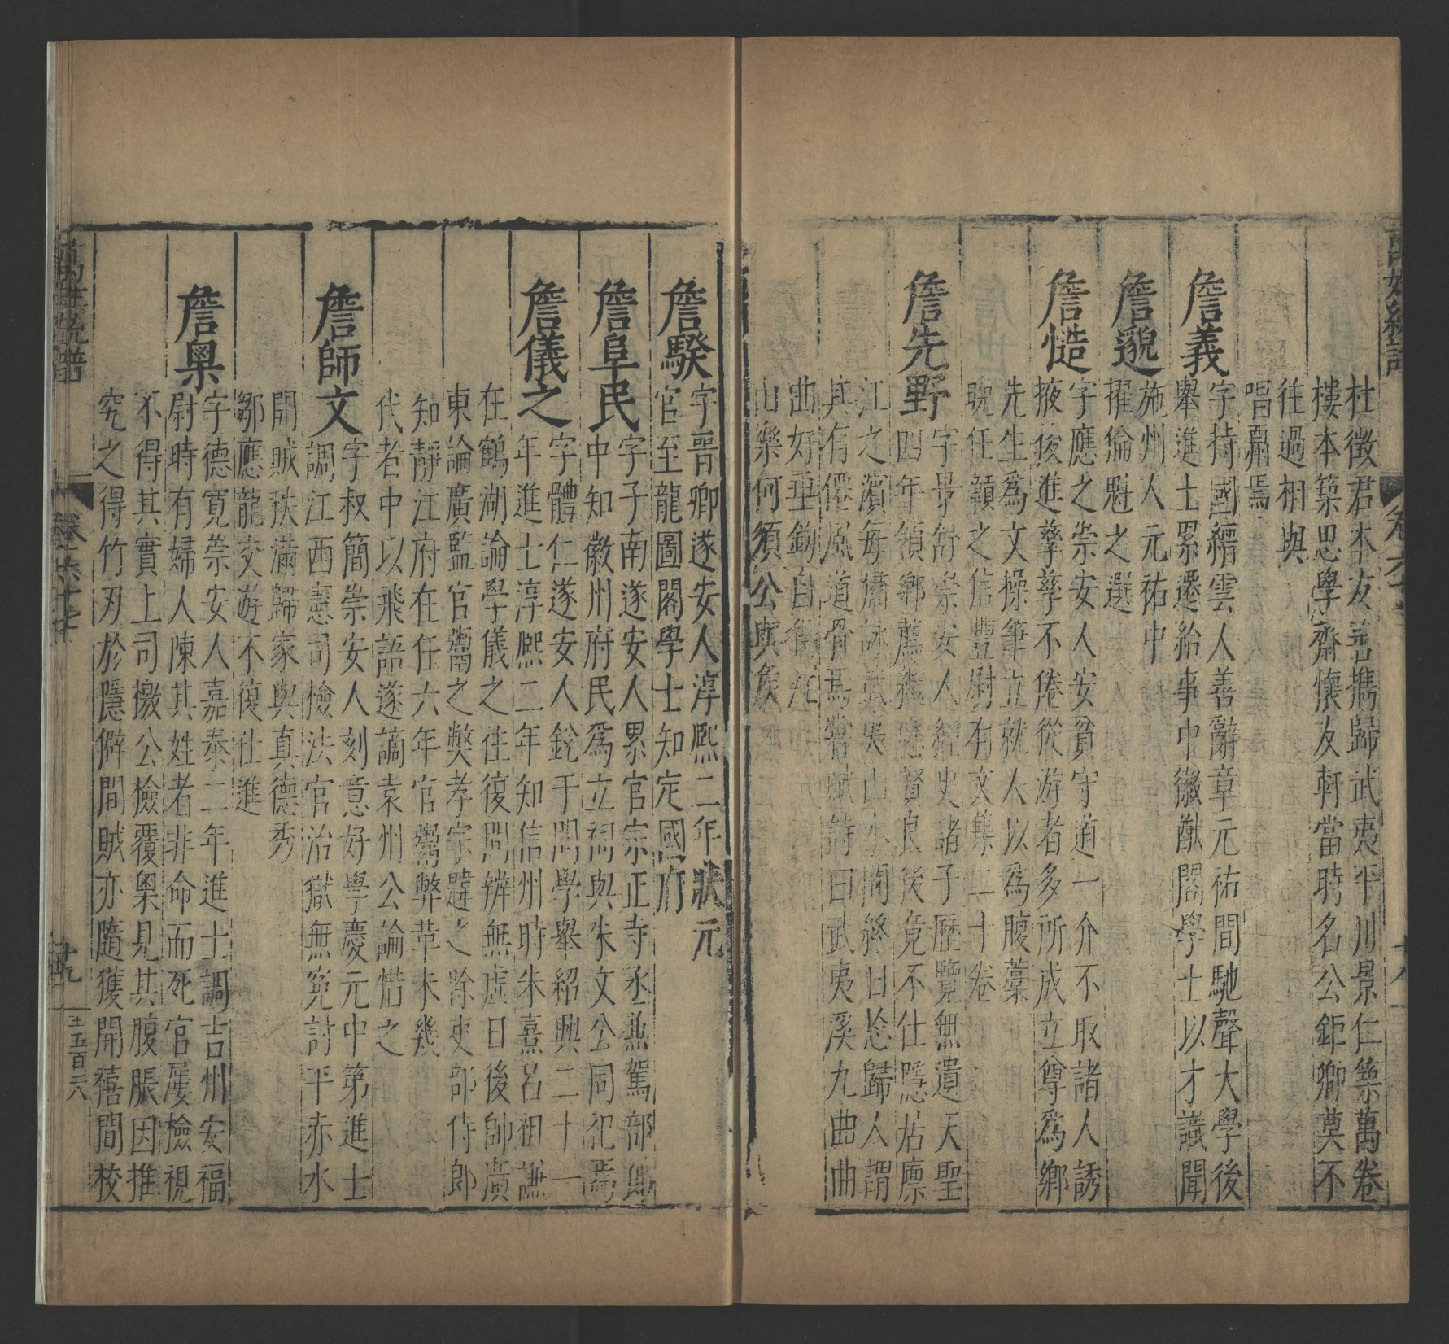 杜徵君本友善攜歸武夷平川景仁築萬卷
樓本築思學齋懷友軒當時名公鉅卿莫不
往過相與
唱鼎焉
詹義
字持國縉雲人善辭章元祐間馳聲大學後
舉進士累遷給事中徽猷閣學士以才識聞
詹邈
施州人元祐中
擢倫魁之選
詹慥
字應之崇安人安貧守道一介不取諸人誘
掖後進孳孳不倦從游者多所成立尊爲鄉
先生爲文操筆立就人以爲腹藁
晚任額之信豐尉有文集二十卷
詹先野
字景舒崇安人經史諸子歷覽無遺天聖
四年領鄉薦 賢良後竟不仕隱居廪
江之濱每 山水間終日忘歸人謂
其有僊風道骨焉嘗賦詩曰武夷溪九曲曲
曲好垂釣自
山樂何須公與侯
詹騤
字晉卿遂安人淳熙二年狀元
官至龍圖閣學士知定國府
詹阜民
字子南遂安人累官宗正寺丞兼駕部郎
中知徽州府民爲立祠與朱文公同祀焉
詹儀之
字體仁遂安人銳于問學舉紹興二十一
年進士淳熙二年知信州時朱熹呂祖謙
在鵝湖論學儀之往復問辨無虛日後帥廣
東論廣監官鬻之弊孝宗韙之除吏部侍郎
知靜江府在任六年官鬻弊革未幾
代者中以飛語遂謫袁州公論惜之
詹師文
字叔簡崇安人刻意好學慶元中第進士
調江西憲司檢法官治獄無冤討平赤水
開賊秩滿歸家與真德秀
鄒應龍交遊不復仕進
詹㮚
字德寬崇安人嘉泰二年進士調吉州安福
尉時有婦人陳其姓者非命而死官屢檢視
不得其實上司檄公檢覆㮚見其腹脹因推
究之得竹刃於隱僻間賊亦隨獲開禧間校
卷六十七
十九